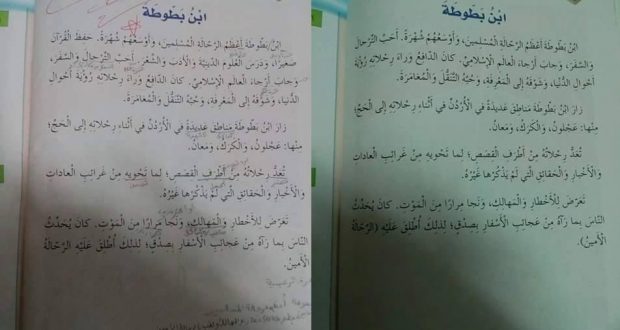 ابْنُ بَطّوطَةَ
ابْنُ بَطّوطَةَ أَعْظَمُ الرَّحّالَةِ الْمُسْلِمينَ، وَأَوْسَعُهُمْ شُهْرَةً. أَحَبَّ التَّرْحالَ
وَالسَّفَرَ، وَجابَ أَرْجاءَ العالَمِ الإِسْلامِيِّ. كانَ الدّافِعُ وَراءَ رِحْلاتِهِ رُؤْيَةَ
أَحْوالِ الدُّنْيا، وَشَوْقَهُ إِلى الْمَعْرِفَةِ، وَحُبَّهُ التَّنَقُّلَ وَالْمُغامَرَةَ.
زارَ ابْنُ بَطّوطَةَ مَناطِقَ عَديدَةً في الْأُرْدُنِّ في أَثْناءِ رِحْلاتِهِ إِلى الْحَجِّ؛
مِنْها: عَجْلونُ، وَالْكَرَكُ، وَمَعانُ.
تُعَدُّ رِحْلاتُهُ مِنْ أَطْرَفِ القِصَصِ؛ لِما تَحْويهِ مِنْ غَرائِبِ العاداتِ
وَالْأَخْبارِ وَالْحَقائِقِ الَّتي لَمْ يَذْكُرْها غَيْرُهُ.
تَعَرَّضَ لِلْأَخْطارِ وَالْمَهالِكِ، وَنَجا مِرارًا مِنَ الْمَوْتِ. كانَ يُحَدِّثُ
النّاسَ بِما رَآهُ مِنْ عَجائِبِ الْأَسْفارِ بِصِدْقٍ؛ لِذلِكَ أُطْلِقَ عَلَيْهِ (الرَّحّالَةُ
الْأَمينُ).
ابْنُ بَطّوطَةَ
ابْنُ بَطّوطَةَ أَعْظَمُ الرَّحّالَةِ الْمُسْلِمينَ، وَأَوْسَعُهُمْ شُهْرَةً. حَفِظَ الْقُرْآنَ
صَغيرًا، وَدَرَسَ الْعُلومَ الدّينِيَّةَ وَالْأَدَبَ وَالشِّعْرَ. أَحَبَّ التَّرْحالَ وَالسَّفَرَ،
وَجابَ أَرْجاءَ العالَمِ الإِسْلامِيِّ. كانَ الدّافِعُ وَراءَ رِحْلاتِهِ رُؤْيَةَ أَحْوالِ
الدُّنْيا، وَشَوْقَهُ إِلى الْمَعْرِفَةِ، وَحُبَّهُ التَّنَقُّلَ وَالْمُغامَرَةَ.
زارَ ابْنُ بَطّوطَةَ مَناطِقَ عَديدَةً في الْأُرْدُنِّ في أَثْناءِ رِحْلاتِهِ إِلى الْحَجِّ؛
مِنْها: عَجْلونُ، وَالْكَرَكُ، وَمَعانُ.
تُعَدُّ رِحْلاتُهُ مِنْ أَطْرَفِ القِصَصِ؛ لِما تَحْويهِ مِنْ غَرائِبِ العاداتِ
وَالْأَخْبارِ وَالْحَقائِقِ الَّتي لَمْ يَذْكُرْها غَيْرُهُ.
تَعَرَّضَ لِلْأَخْطارِ وَالْمَهالِكِ، وَنَجا مِرارًا مِنَ الْمَوْتِ. كانَ يُحَدِّثُ
النّاسَ بِما رَآهُ مِنْ عَجائِبِ الْأَسْفارِ بِصِدْقٍ؛ لِذلِكَ أُطْلِقَ عَلَيْهِ الرَّحّالَةُ
الْأَمينُ.